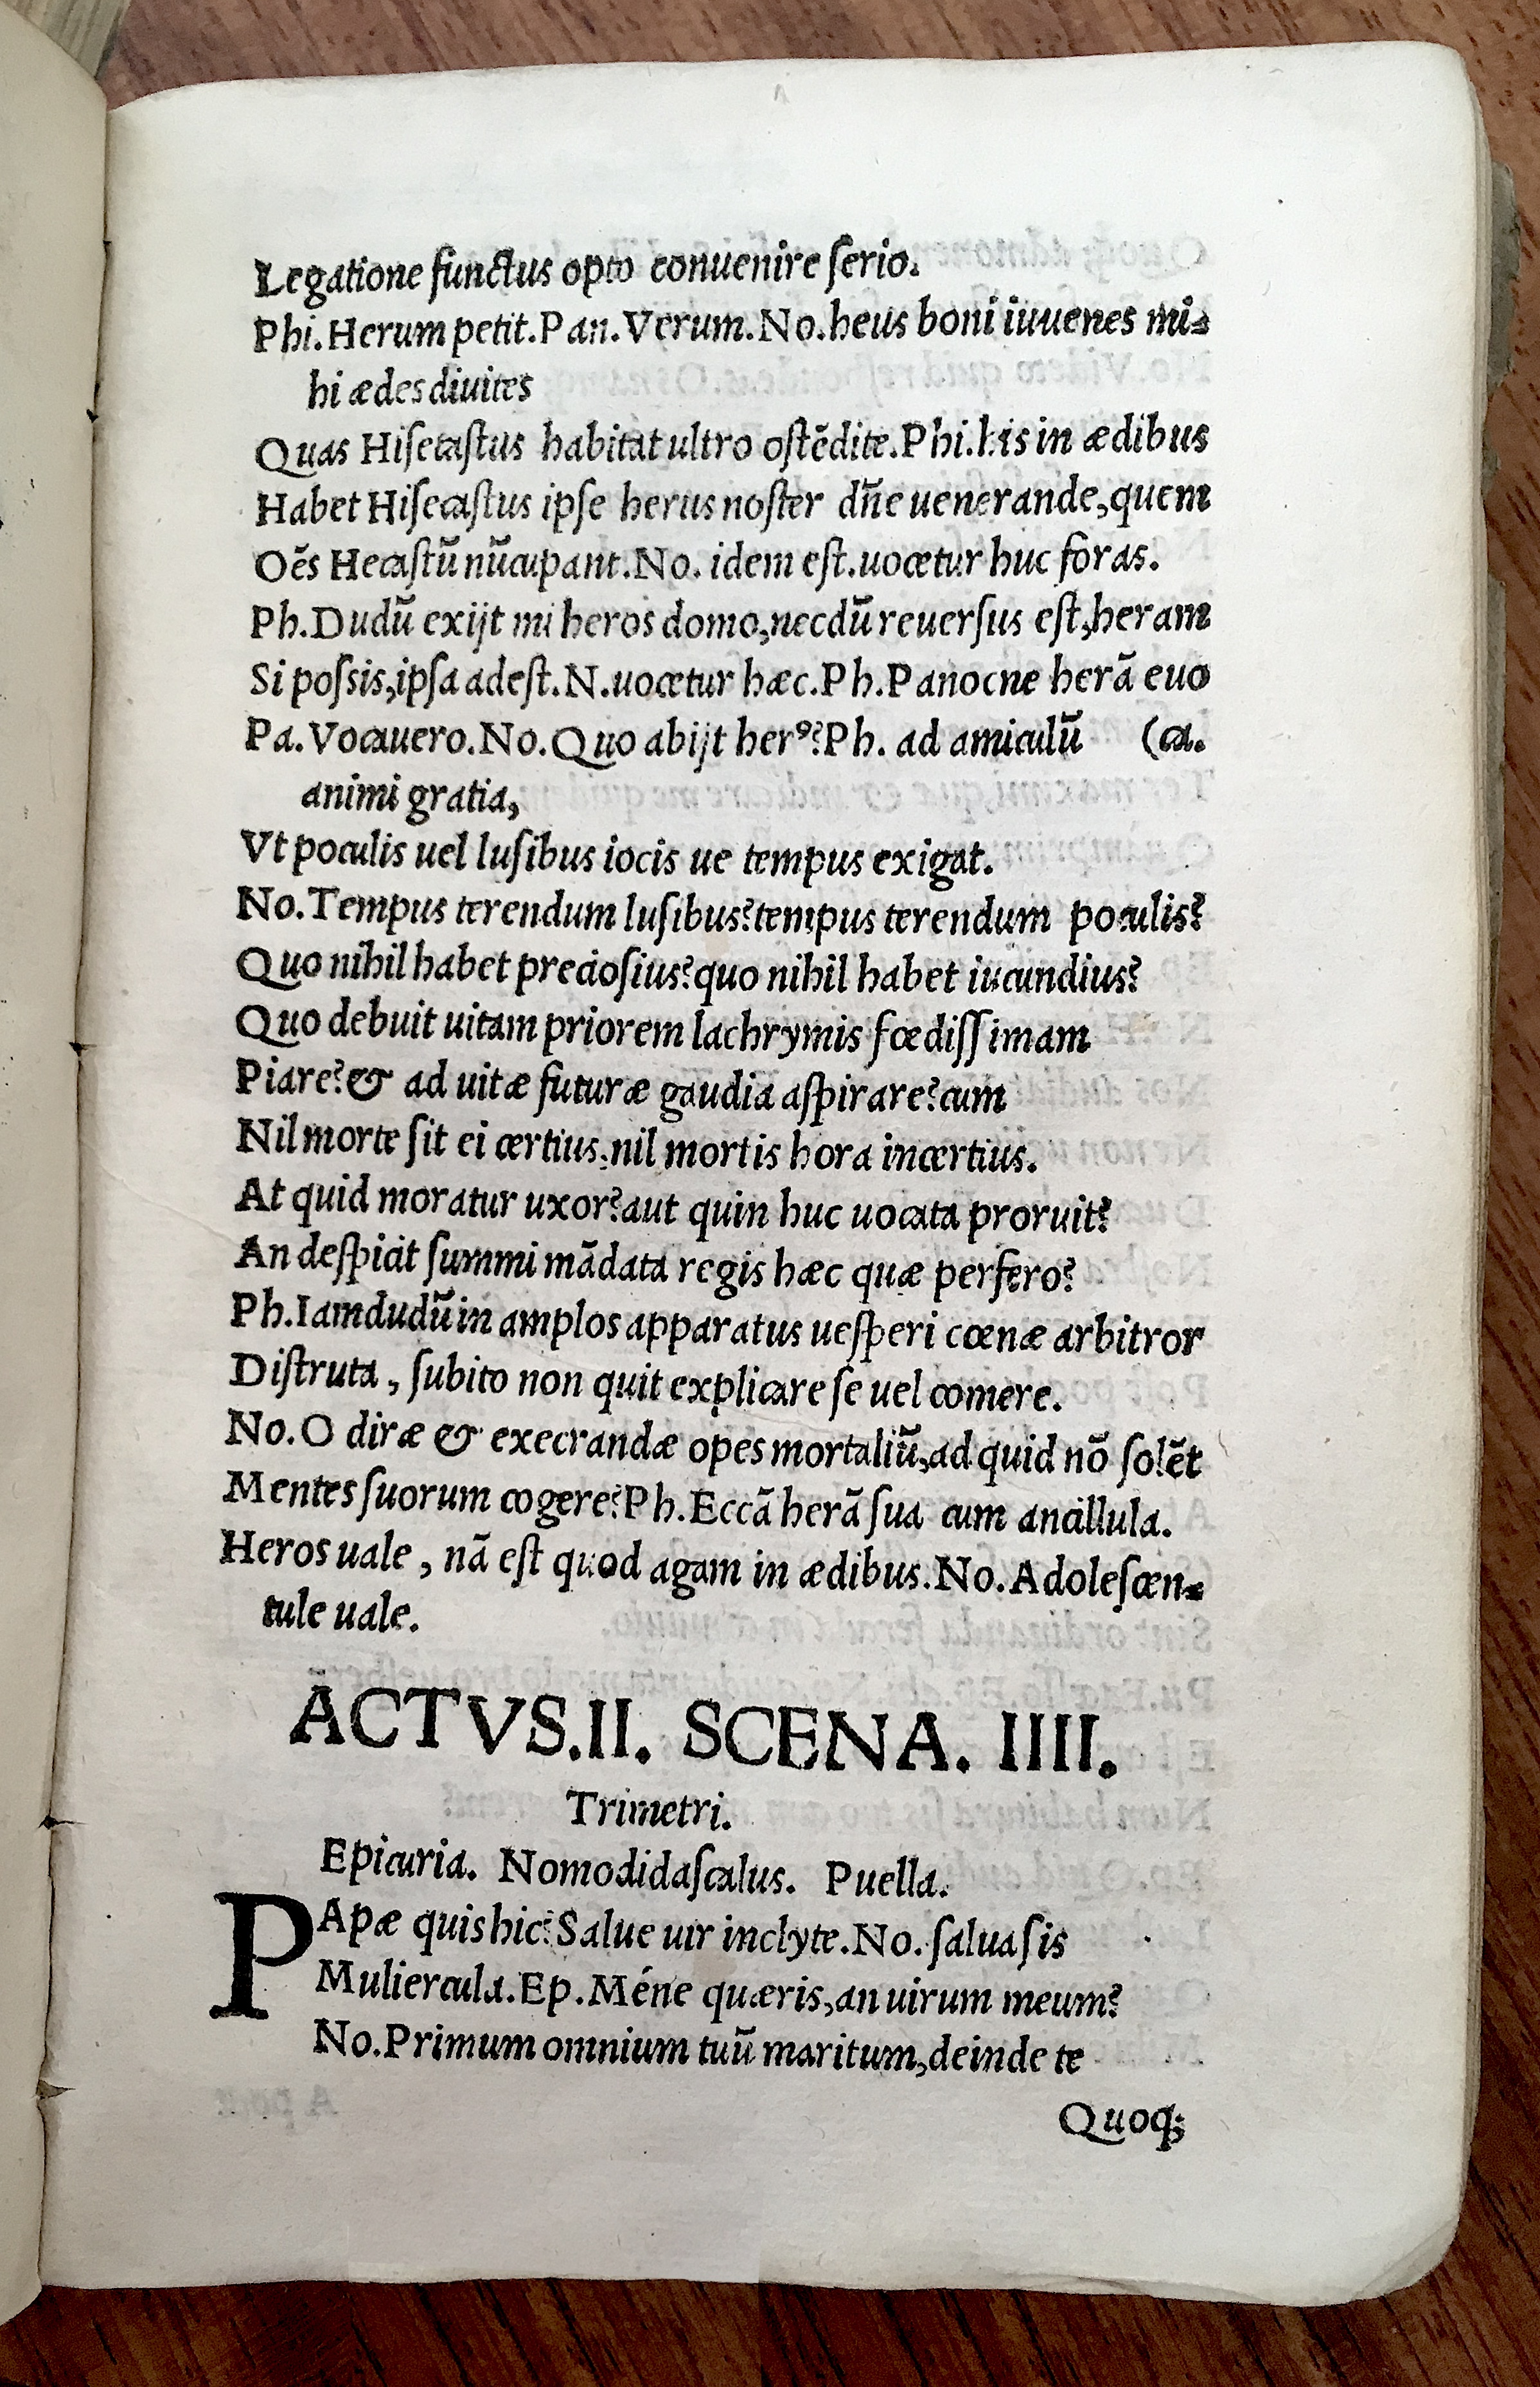 Legatione functus opto conuenire ſerio.
Phi. Herum petit. Pan. Verum. No. heus boni iuuenes mi-
hi ædes diuites
Quas Hiſecaſtus habitat ultro oſtẽdite. Phi. his in ædibus
Habet Hiſecaſtus ipſe herus noſter dñe uenerande, quem
Oẽs Hecaſtũ nũcupant. No. idem eſt. uocetur huc foras.
Ph. Dudũ exijt mi heros domo, necdũ reuerſus eſt, heram
Si poſsis, ipſa adeſt. N. uocetur hæc. Ph. Panocne herã euo
Pa. Vocauero. No. Quo abijt herꝰ? Ph. ad amiculũ (ca.
animi gratia,
Vt poculis uel luſibus iocis ue tempus exigat.
No. Tempus terendum luſibus? tempus terendum poculis?
Quo nihil habet precioſius? quo nihil habet iucundius?
Quo debuit uitam priorem lachrymis fœdiſſimam
Piare? & ad uitæ futuræ gaudia aſpirare? cum
Nil morte ſit ei certius, nil mortis hora incertius.
At quid moratur uxor? aut quin huc uocata proruit?
An deſpicit ſummi mãdata regis hæc quæ perfero?
Ph. Iamdudũ in amplos apparatus ueſperi cœnæ arbitror
Diſtruta, ſubito non quit explicare ſe uel comere.
No. O diræ & execrandæ opes mortaliũ, ad quid nõ ſolẽt
Mentes ſuorum cogere? Ph. Eccã herã ſua cum ancillula.
Heros uale, nã eſt quod agam in ædibus. No. Adoleſcen-
tule uale.
ACTVS. II. SCENA. IIII.
Trimetri.
Epicuria. Nomodidaſcalus. Puella.
PApæ quis hic? Salue uir inclyte. No. ſalua ſis
Muliercula. Ep. Méne quæris, an uirum meum?
No. Primum omnium tuũ maritum, deinde te
Quoq;